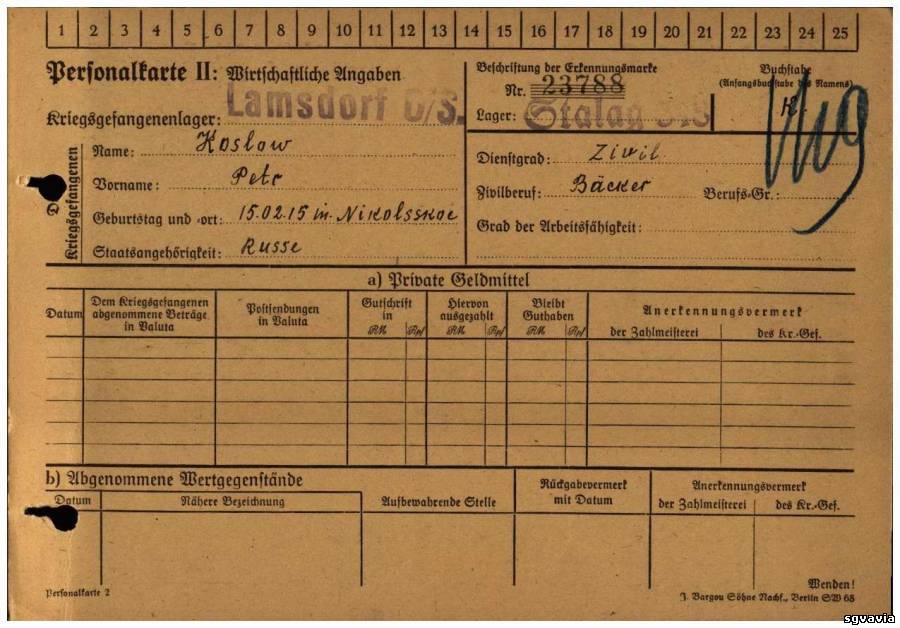 1 2 3 4 5 6 7 8 9 10 11 12 13 14 15 16 17 18 19 20 21 22 23 24 25
Personalkarte II: Wirtschaftliche Angaben
Kriegsgefangenenlager: Lamsdorf O/S.
Beschriftung der Erkennungsmarke
Nr. 23788
Lager: Stalag
Buchstabe
(Anfangsbuchstabe des Namens)
K.
Des Kriegsgefangenen
Name: Koslow
Vorname: Petr
Geburtstag und -ort: 15.02.15 in Nikolsskoe
Staatsangehörigkeit: Russe
Dienstgrad: Zivil
Zivilberuf: Bäcker Berufs-Gr.:
Grad der Arbeitsfähigkeit:
a) Private Geldmittel
Datum
Dem Kriegsgefangenen
abgenommene Beträge
in Valuta
Postsendungen
in Valuta
Gutschrift
in
RM Rpf
Hiervon
ausgezahlt
RM Rpf
Bleibt
Guthaben
RM Rpf
Anerkennungsvermerk
der Zahlmeisterei des Kr.-Gef.
b) Abgenommene Wertgegenstände
Datum
Nähere Bezeichnung
Aufbewahrende Stelle
Rückgabevermerk
mit Datum
Anerkennungsvermerk
der Zahlmeisterei des Kr.-Gef.
Wenden!
Personalkarte 2
J. Bargou Söhne Nachf., Berlin SW 68
sgvavia